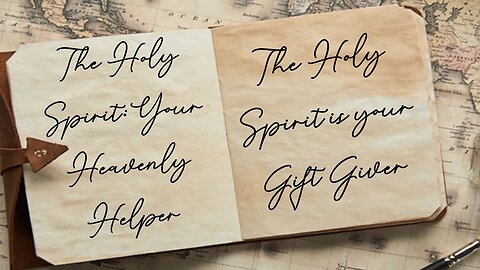 The Holy
Spirit: Your
Heavenly
Helper
The Holy
Spirit is your
Gift Giver